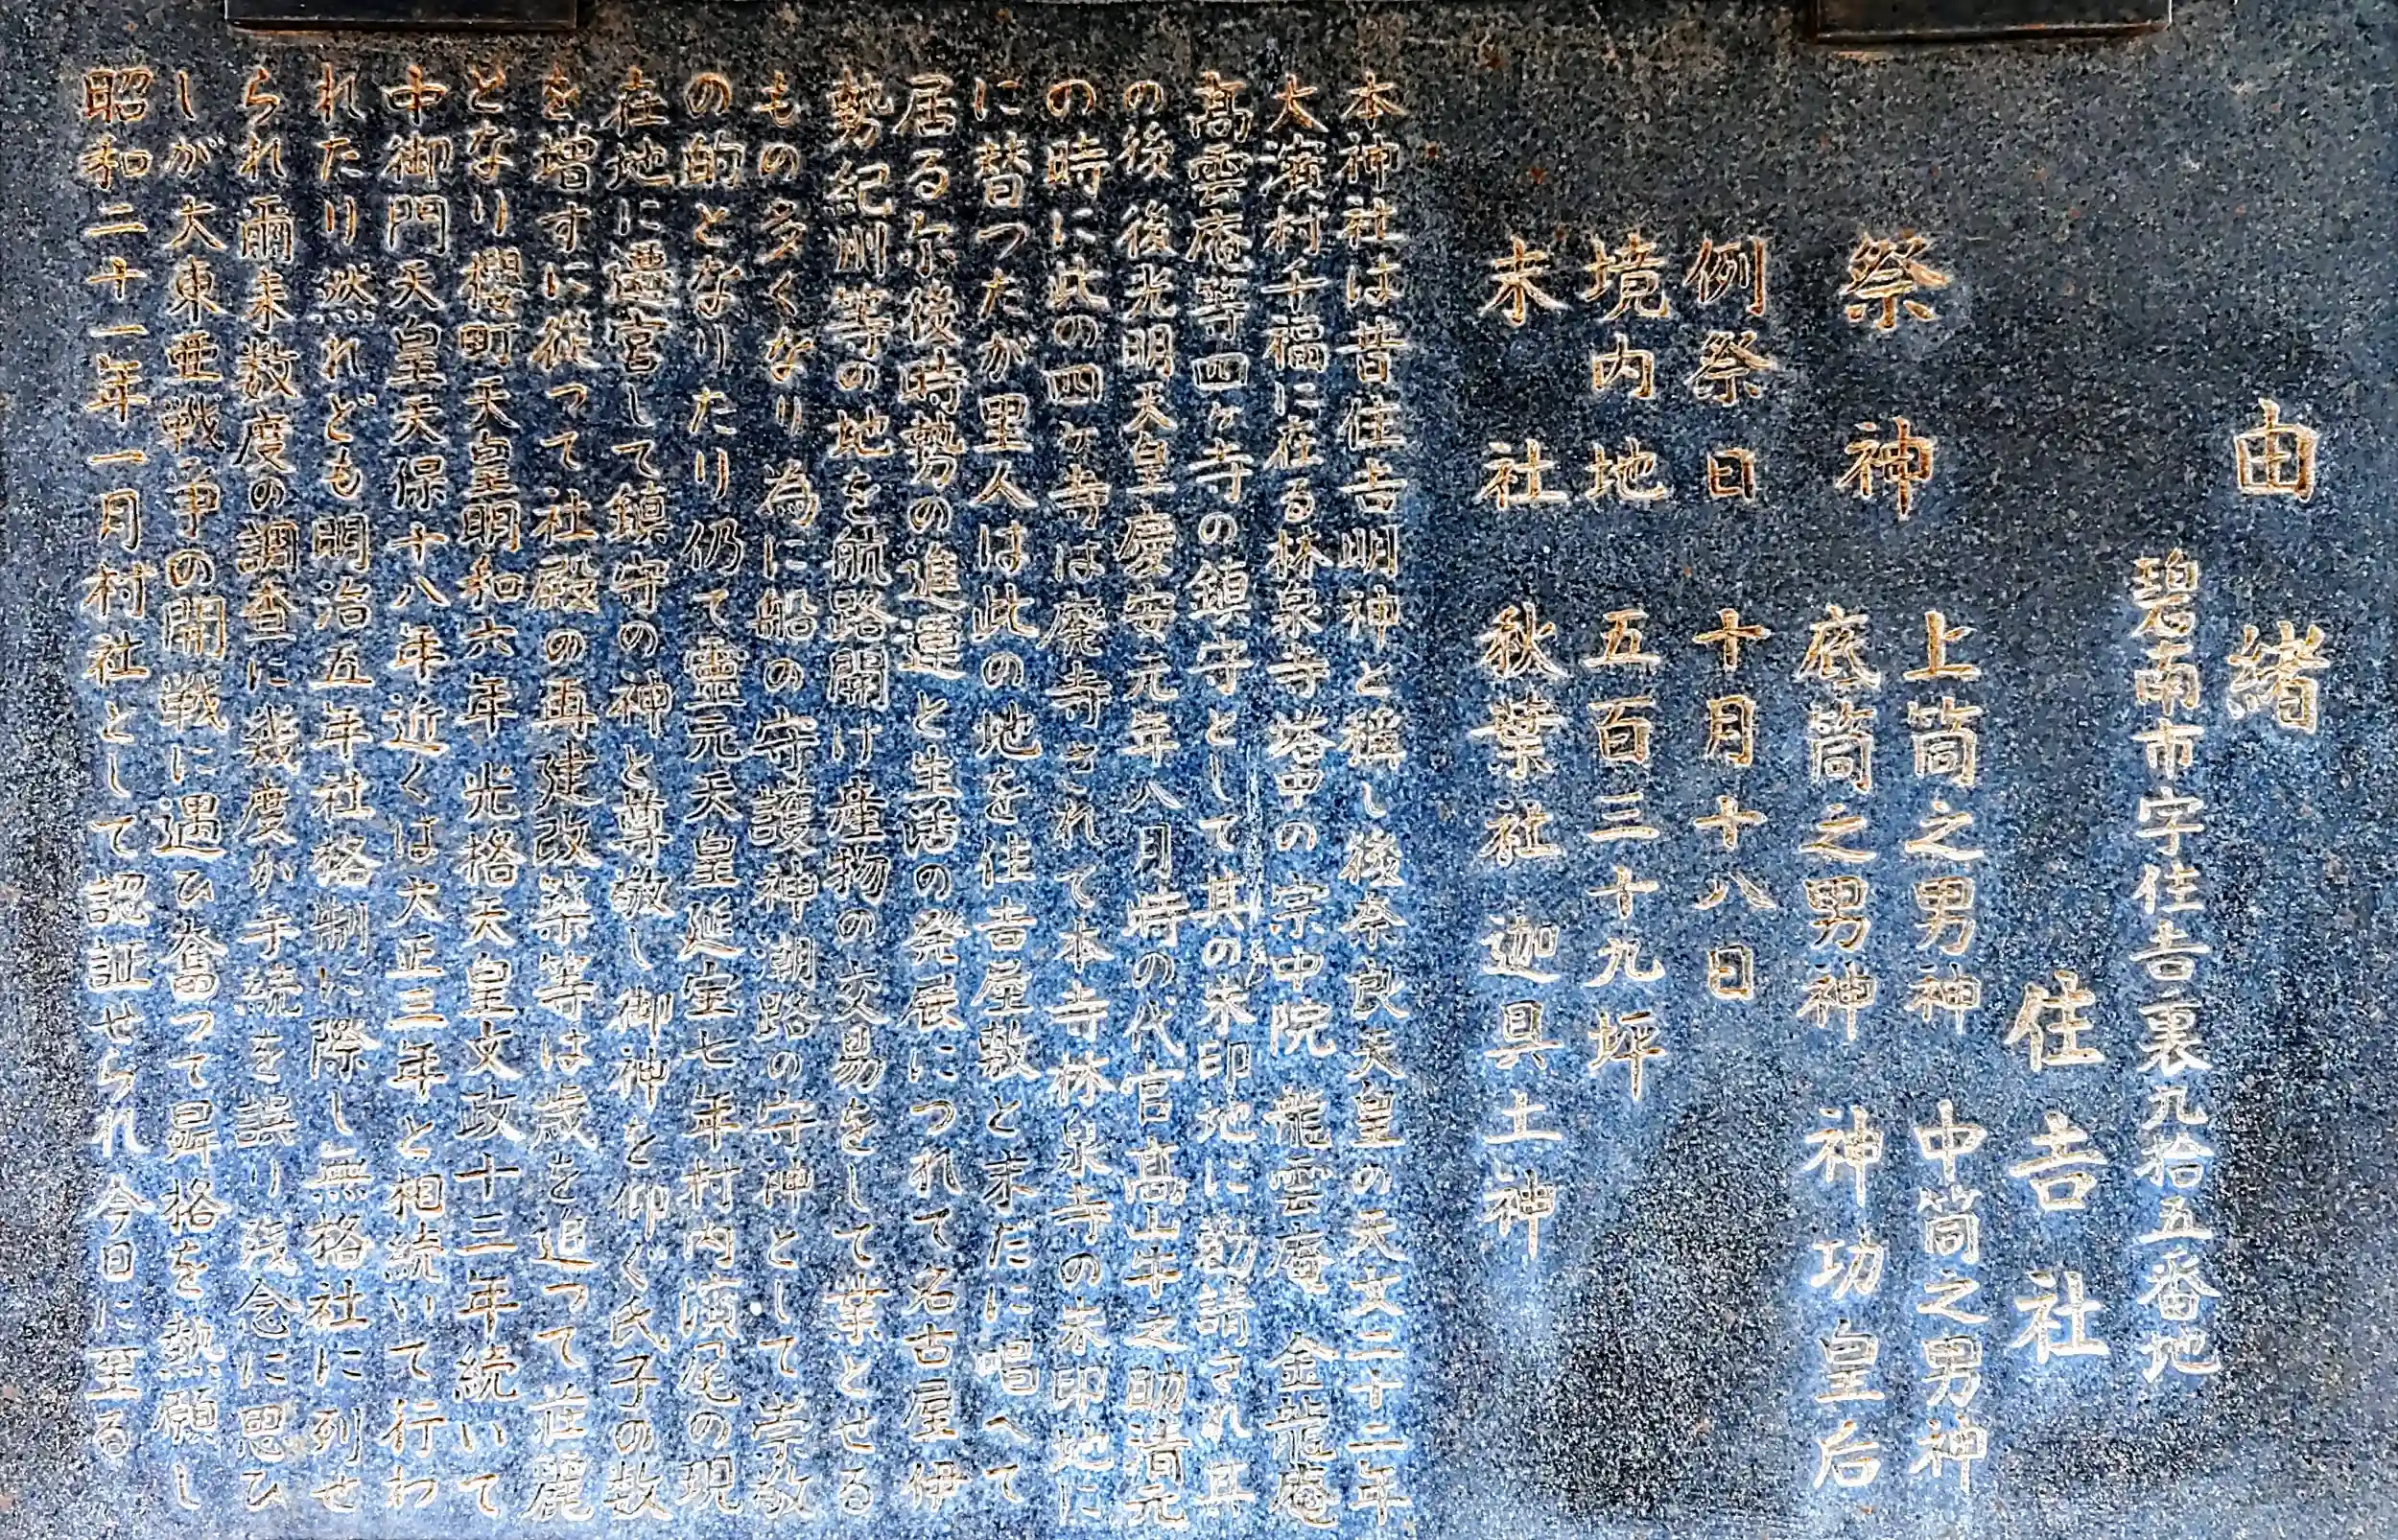 由緒
碧南市字住吉裏九拾五番地
住吉社
祭神 上筒之男神 中筒之男神
底筒之男神 神功皇后
例祭日 十月十八日
境内地 五百三十九坪
末社 秋葉社 迦具土神
本神社は昔住吉明神と稱し後奈良天皇の天文二十二年
大濱村千福に在る林泉寺塔中の宗中院龍雲庵金龍庵
髙雲庵等四ヶ寺の鎮守として其の朱印地に勧請され其
の後後光明天皇慶安元年八月時の代官髙山牛之助清元
の時に此の四ヶ寺は廃寺されて本寺林泉寺の朱印地に
に替つたが里人は此の地を住吉屋敷と末だに唱へて
居る尓後時勢の進運と生活の発展につれて名古屋伊
勢紀州等の地を航路開け産物の交易をして業とせる
もの多くなり為に船の守護神潮路の守神として崇敬
の的となりたり仍て霊元天皇延宝七年村内濱尾の現
在地に遷宮して鎮守の神と尊敬し御神を仰ぐ氏子の数
を増すに從って社殿の再建改築等は歳を追つて荘麗
となり櫻町天皇明和六年光格天皇文政十三年続いて
中御門天皇天保十八年近くは大正三年と相続いて行わ
れたり然れども明治五年社格制に際し無格社に列せ
られ爾来数度の調査に幾度か手続を誤り残念に思ひ
しが大東亜戦争の開戦に遇ひ奮つて昇格を熱願し
昭和二十一年一月村社として認証せられ今日に至る